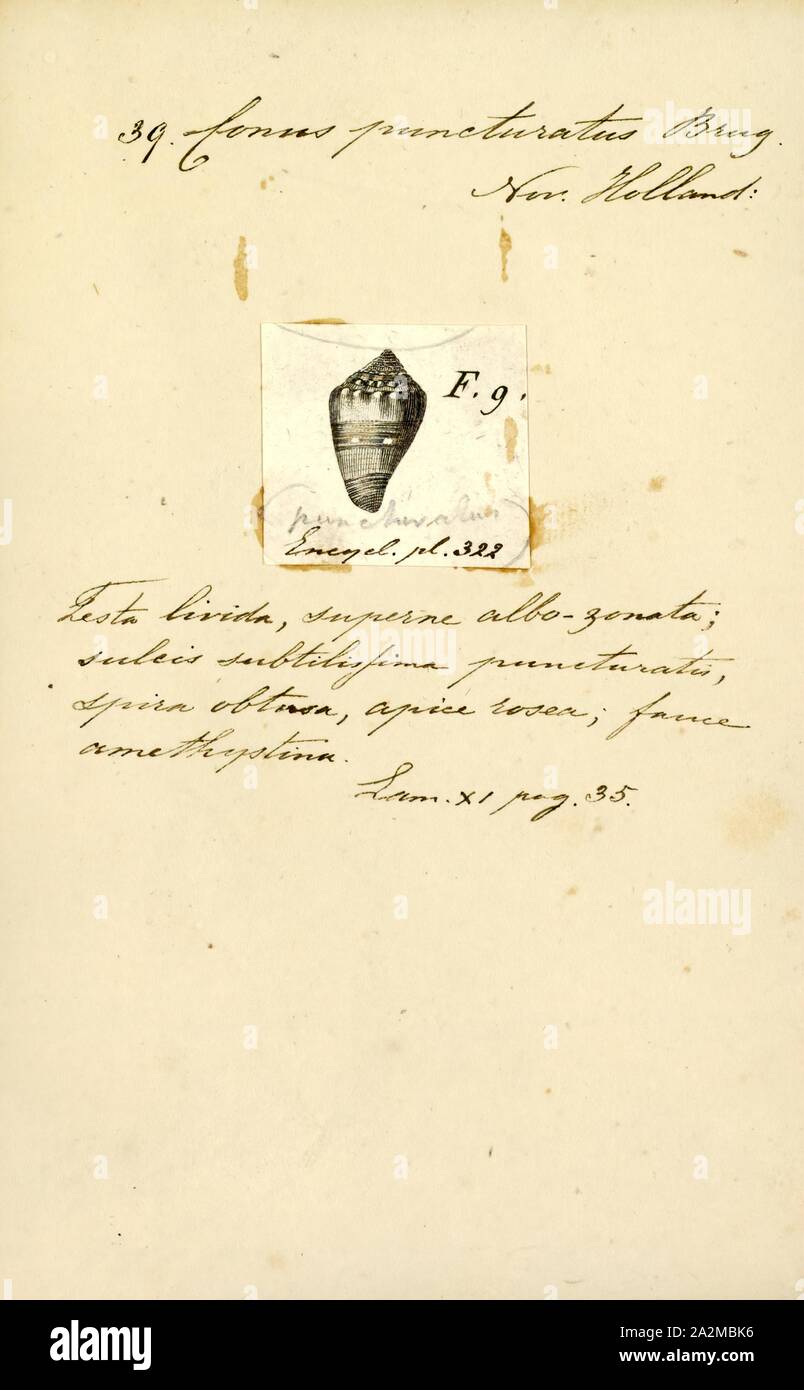 39. Conus puncturatus Brug.
Nov. Holland:
F. 9.
puncturatus
Encycl. pl. 322
Testa livida, superne albo-zonata;
sulcis subtilissima puncturatis,
spira obtusa, apice rosea; fauce
amethystina.
Lam. XI pag. 35.
alamy
alamy
alamy
alamy
Image ID: 2A2MBK6
www.alamy.com